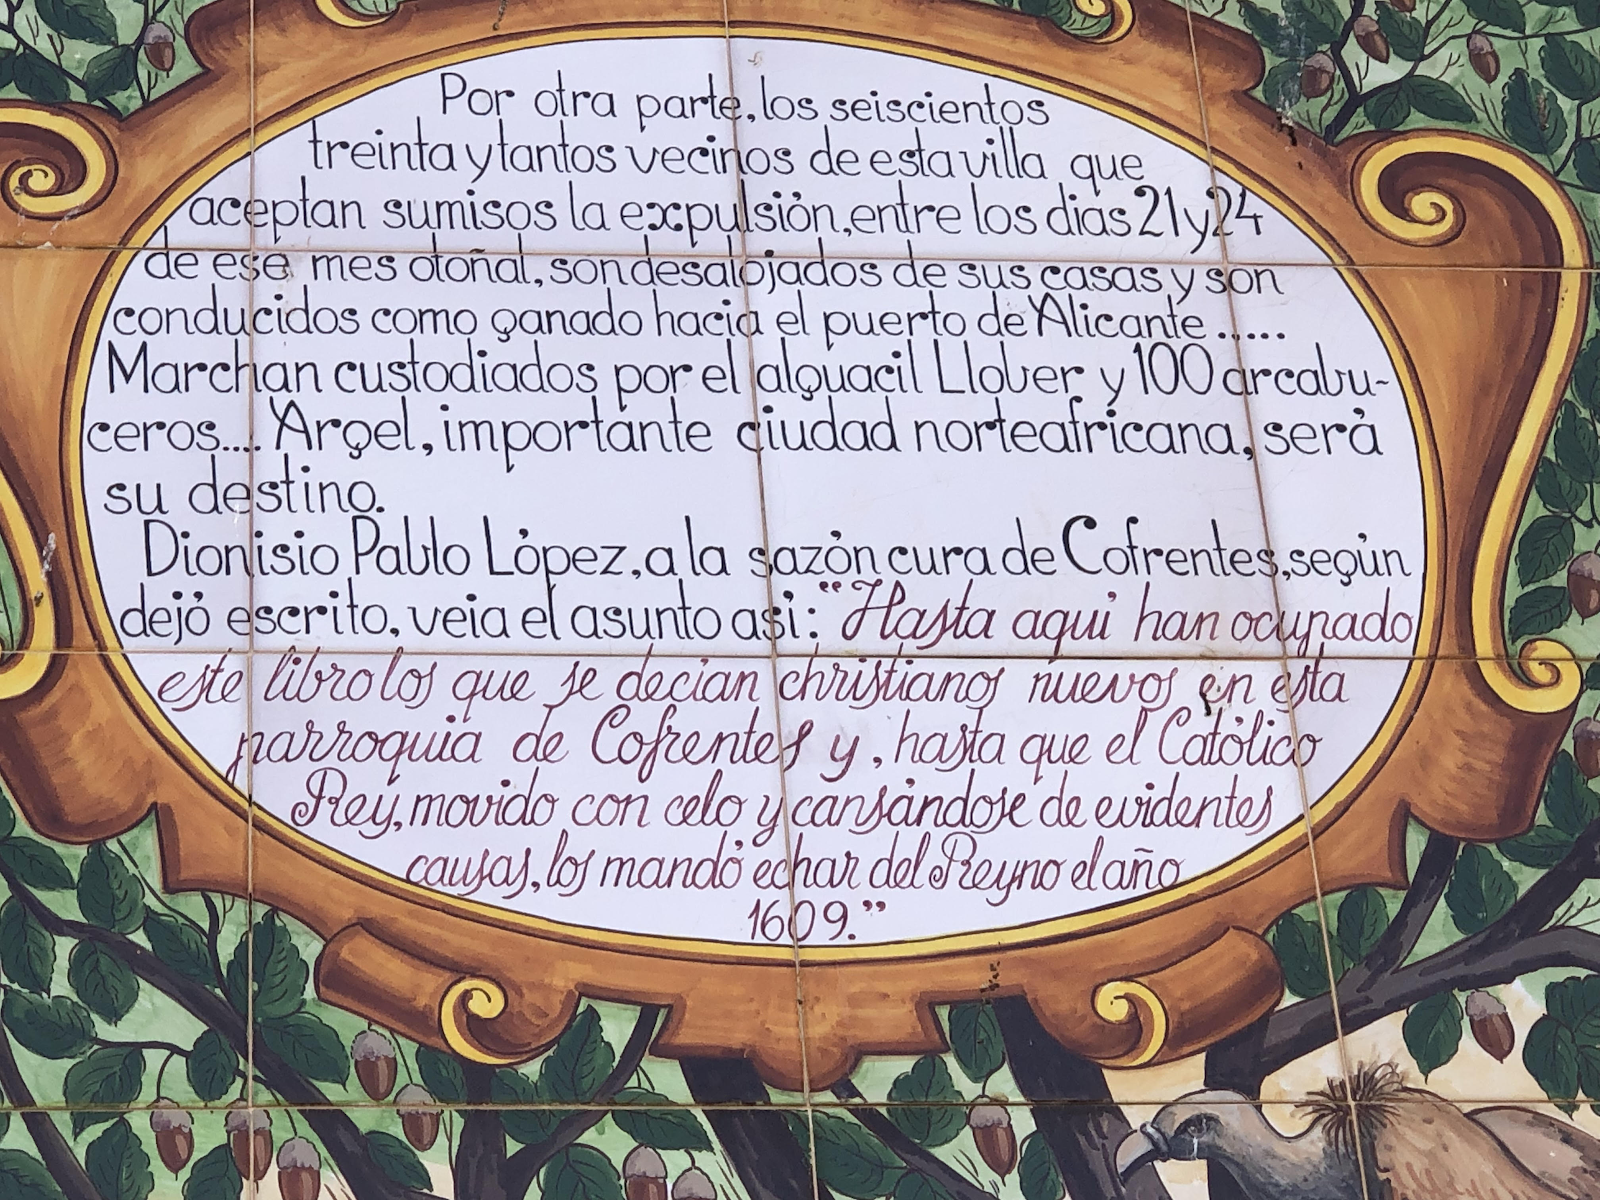 Por otra parte, los seiscientos
treinta y tantos vecinos de esta villa que
aceptan sumisos la expulsión, entre los dias 21 y 24
de ese mes otoñal, son desalojados de sus casas y son
conducidos como ganado hacia el puerto de Alicante......
Marchan custodiados por el alguacil Llober y 100 arcabu-
ceros.... Argel, importante ciudad norteafricana, será
su destino.
Dionisio Pablo López, a la sazón cura de Cofrentes, según
dejó escrito, veia el asunto asi: "Hasta aqui han ocupado
este libro los que se decian christianos nuevos en esta
parroquia de Cofrentes y, hasta que el Católico
Rey, movido con celo y cansándose de evidentes
causas, los mandó echar del Reyno el año
1609."